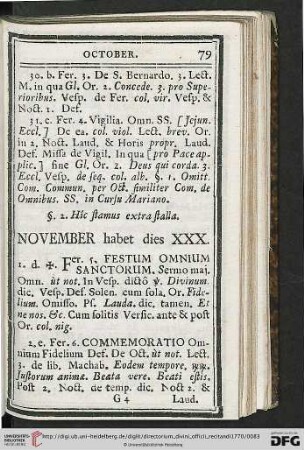 OCTOBER. 79
30. b. Fer. 3. De S. Bernardo. 3. Lect.
M. in qua Gl. Or. 2. Concede. 3. pro Supe-
rioribus. Vesp. de Fer. col. vir. Vesp. &
Noct. 1. Def.
31. c. Fer. 4. Vigilia. Omn. SS. [Jejun.
Eccl.] De ea. col. viol. Lect. brev. Or.
in 2. Noct. Laud. & Horis propr. Laud.
Def. Missa de Vigil. In qua [pro Pace ap-
plic.] sine Gl. Or. 2. Deus qui corda. 3.
Eccl. Vesp. de seq. col. alb. §. 1. Omitt.
Com. Commun. per Oct. similiter Com. de
Omnibus. SS. in Cursu Mariano.
§. 2. Hic stamus extra stalla.
NOVEMBER habet dies XXX.
1. d. ✠. Fer. 5. FESTUM OMNIUM
SANCTORUM. Sermo maj.
Omn. ùt not. In Vesp. dictô ℣. Divinum
dic. Vesp. Def. Solen. cum sola. Or. Fide-
lium. Omisso. Ps. Lauda. dic. tamen. Et
ne nos. &c. Cum solitis Versic. ante & post
Or. col. nig.
2. e. Fer. 6. COMMEMORATIO Om-
nium Fidelium Def. De Oct. ùt not. Lect.
3. de lib. Machab. Eodem tempore,
Justorum animæ. Beata vere. Beati estis.
Post 2. Noct. de temp. dic. Noct 2. &
G 4 Laud.
UNIVERSITÄTS-
BIBLIOTHEK
HEIDELBERG
http://digi.ub.uni-heidelberg.de/diglit/directorium_divini_officii_recitandi1770/0083
DFG